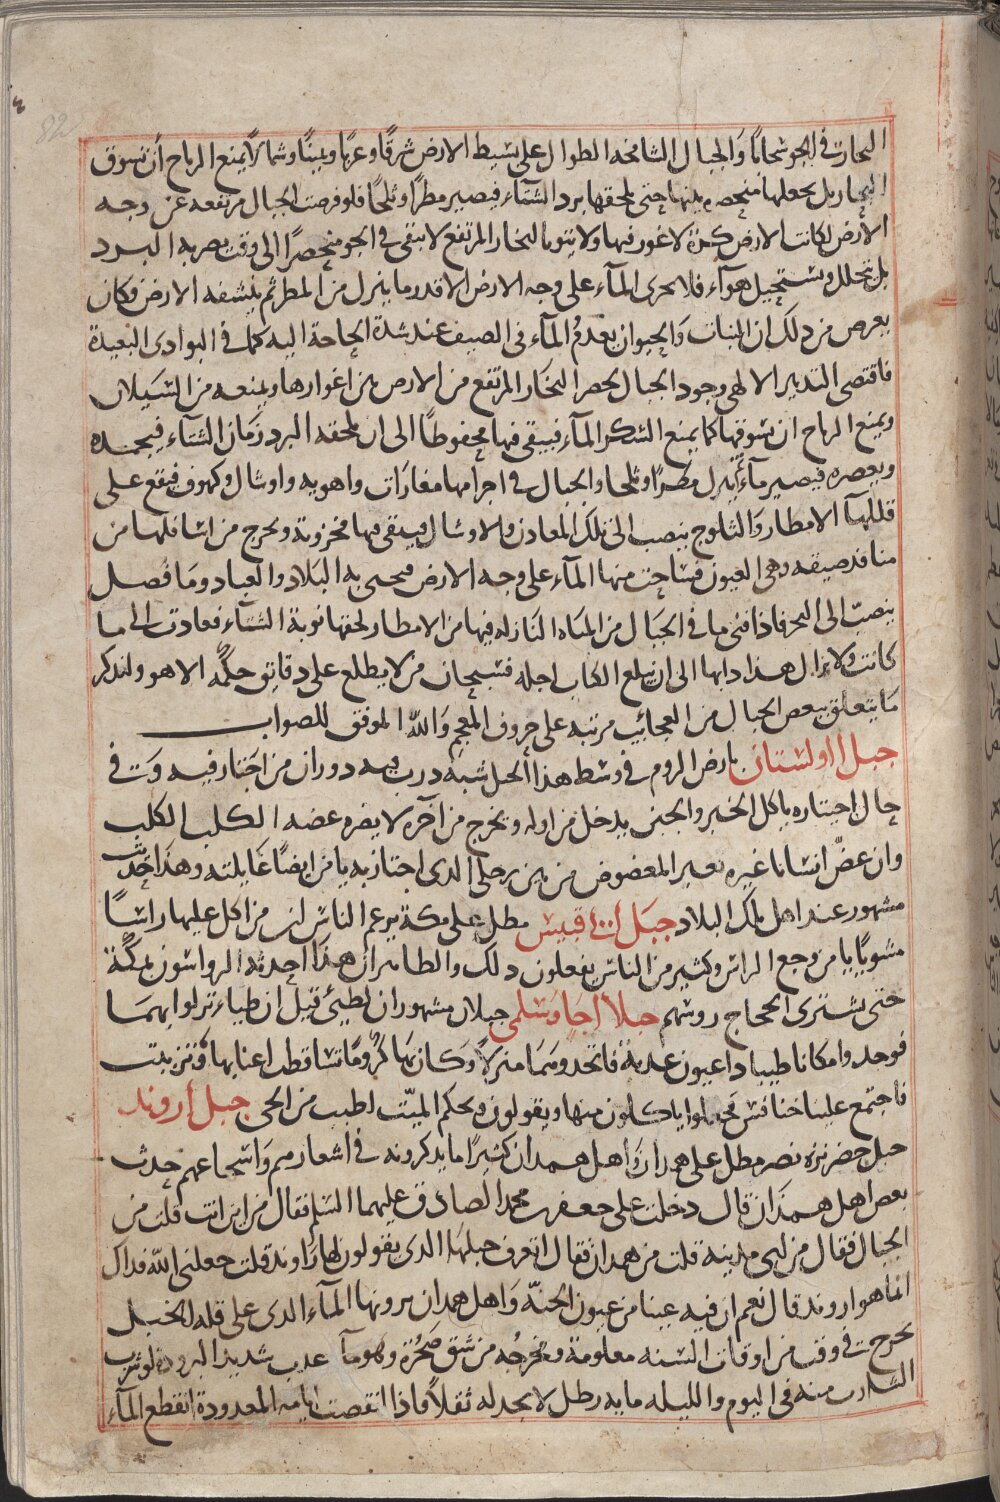 البخارت فى الجو سحابا والجبال الشامخه الطوال على بسيط الارض شرقا وغربا ويمينا وشمالا يمنع الرياح أن تسوق
البخار بل يجعلها منحصره بينها حتى يلحقها برد الشتاء فيصير مطرا وثلجا فلو فرضت الجبال مرتفعه عن وجه
الارض لكانت الارض كرة لاغور فيها ولا نتو والبخار المرتفع لا يبقى فى الجو منحصرا الى وقت يصربه البرد
بل تتحلل ويستحيل هوآء فلا يجرى المآء على وجه الارض الا قدر ما ينزل من المطر ثم ينشفه الارض وكان
يعرض من ذلك ان النبات والحيوان يعدم المآء فى الصيف عند شدة الحاجة اليه كما فى البوادى البعيدة
فاقتضى التدبير الالهى وجود الجبال لحصر البخار المرتفع من الارض بين اغوارها ويمنعه من السيلان
ويمنع الرياح ان تسوقها كما يمنع السكر المآء فيبقى فيها محفوظا الى ان يلحقه البرد زمان الشتاء فيجمده
ويعصره فيصير مآء ينزل مطرا وثلجا والجبال فى اجرامها مغارات واهويه واوشال وكهوف فيقع على
قللها الامطار والثلوج ينصب الى تلك المعادن والاوشال فيبقى فيها مخزونة ويخرج من اسافلها من
منافد ضيقه وهى العيون فيساحت منها المآء على وجه الارض فيحيى به البلاد والعباد وما فضل
ينصب الى البحر فاذا فنى ما فى الجبال من المياه النازله فيها من الامطار لحقها نوبة الشتآء فعادت الى ما
كانت ولا يزال هذا دابها الى ان يبلغ الكتاب اجله فسبحان من لا يطلع على دقايق حكمه الا هو ولنذكر
ما يتعلق ببعض الجبال من العجائب مرتبه على حروف المعجم والله الموفق للصواب
جبل اولستان بارض الروم فى وسط هذا الجبل شبه درب فيه دوران من اجتاز فيه وت فى
حال اجتيازه ياكل الخبز والجبن يدخل من اوله ويخرج من آخره لا يضره عضه الكلب الكلب
وان عض انسانا غيره يعبر المعضوض من بين رجلى الذى اجتاز به يامن ايضا غايلته وهذا حديث
مشهور عند اهل تلك البلاد جبل ابى قبيس مطل على مكة يزعم الناس ان من اكل عليها راسا
مشويا يامن وجع الراس وكثير من الناس يفعلون ذلك والظاهر ان هذا احدثه الرواسون بمكة
حتى يشترى الحجاج روسهم جبلا اجا وسلمى جبلان مشهوران لطيئ قيل ان طياء نزلوا بهما
فوجدوا مكانا طيبا ذا عيون عذبة فاتخدوهما منزلا وكان بها كروما تساقط اعنابها وتزببت
فاجتمع عليها خنافس فجعلوا ياكلون منها ويقولون ويحكم الميت اطيب من الحى جبل أروند
جبل خضر نزه نضر مطل على همدان واهل همدان كثيرا ما يذكرونه فى اشعارهم واسجاعهم حدث
بعض اهل همدان قال دخلت على جعفر بن محمد الصادق عليهما السلم فقال من اين انت قلت من
الجبال فقال من اى مدينه قلت من همدان فقال اتعرف جبلها الذى يقولون لها راوند قلت جعلنى الله فداك
انما هو اروند قال نعم ان فيه عينا من عيون الجنه واهل همدان يرونها المآء الذى على قله الجبل
يخرج فى وقت من اوقات السنه معلومة ومخرجه من شق صخرة وهو مآ عذب شديد البرودة لو شرب
الشارب منه فى اليوم والليله مايه رطل لا يجد له ثقلا فاذا انقضت ايامه المعدودة انقطع المآء